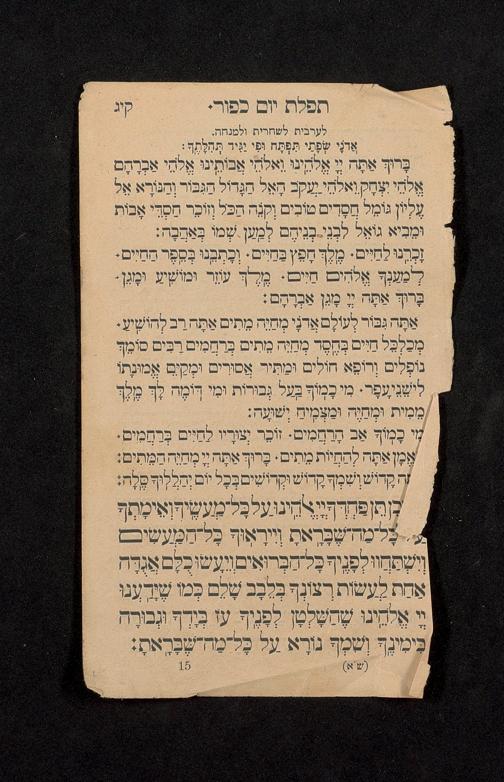 תפלת יום כפור· קיג
לערבית לשחרית ולמנחה.
אֲדֹנָי שְׂפָתַי תִּפְתָּח וּפִי יַגִּיד תְּהִלָּתֶךָ:
בָּרוּךְ אַתָּה יְיָ אֱלֹהֵינוּ וֵאלֹהֵי אֲבוֹתֵינוּ אֱלֹהֵי אַבְרָהָם
אֱלֹהֵי יִצְחָק וֵאלֹהֵי יַעֲקֹב הָאֵל הַגָּדוֹל הַגִּבּוֹר וְהַנּוֹרָא אֵל
עֶלְיוֹן גּוֹמֵל חֲסָדִים טוֹבִים וְקֹנֵה הַכֹּל וְזוֹכֵר חַסְדֵי אָבוֹת
וּמֵבִיא גוֹאֵל לִבְנֵי בְנֵיהֶם לְמַעַן שְׁמוֹ בְּאַהֲבָה:
זָכְרֵנוּ לְחַיִּים· מֶלֶךְ חָפֵץ בַּחַיִּים· וְכָתְבֵנוּ בְּסֵפֶר הַחַיִּים·
לְמַעַנְךָ אֱלֹהִים חַיִּים· מֶלֶךְ עוֹזֵר וּמוֹשִׁיעַ וּמָגֵן·
בָּרוּךְ אַתָּה יְיָ מָגֵן אַבְרָהָם:
אַתָּה גִּבּוֹר לְעוֹלָם אֲדֹנָי מְחַיֵּה מֵתִים אַתָּה רַב לְהוֹשִׁיעַ·
מְכַלְכֵּל חַיִּים בְּחֶסֶד מְחַיֵּה מֵתִים בְּרַחֲמִים רַבִּים סוֹמֵךְ
נוֹפְלִים וְרוֹפֵא חוֹלִים וּמַתִּיר אֲסוּרִים וּמְקַיֵּם אֱמוּנָתוֹ
לִישֵׁנֵי עָפָר· מִי כָמוֹךָ בַּעַל גְּבוּרוֹת וּמִי דוֹמֶה לָּךְ מֶלֶךְ
מֵמִית וּמְחַיֶּה וּמַצְמִיחַ יְשׁוּעָה:
מִי כָמוֹךָ אַב הָרַחֲמִים· זוֹכֵר יְצוּרָיו לְחַיִּים בְּרַחֲמִים·
אֱמָן אַתָּה לְהַחֲיוֹת מֵתִים· בָּרוּךְ אַתָּה יְיָ מְחַיֵּה הַמֵּתִים:
ה קָדוֹשׁ וְשִׁמְךָ קָדוֹשׁ וּקְדוֹשִׁים בְּכָל יוֹם יְהַלְלוּךָ סֶּלָה:
כֵן תֵּן פַּחְדְּךָ יְיָ אֱלֹהֵינוּ עַל כָּל־מַעֲשֶׂיךָ וְאֵימָתְךָ
כָּל־מַה־שֶּׁבָּרָאתָ וְיִירָאוּךָ כָּל־הַמַּעֲשִׂים
וְיִשְׁתַּחֲווּ לְפָנֶיךָ כָּל־הַבְּרוּאִים וְיֵעָשׂוּ כֻלָּם אֲגֻדָּה
אַחַת לַעֲשׂוֹת רְצוֹנְךָ בְּלֵבָב שָׁלֵם כְּמוֹ שֶׁיָּדַעְנוּ
יְיָ אֱלֹהֵינוּ שֶׁהַשָּׁלְטָן לְפָנֶיךָ עֹז בְּיָדְךָ וּגְבוּרָה
בִּימִינֶךָ וְשִׁמְךָ נוֹרָא עַל כָּל־מַה־שֶּׁבָּרָאתָ:
(ש״א) 15